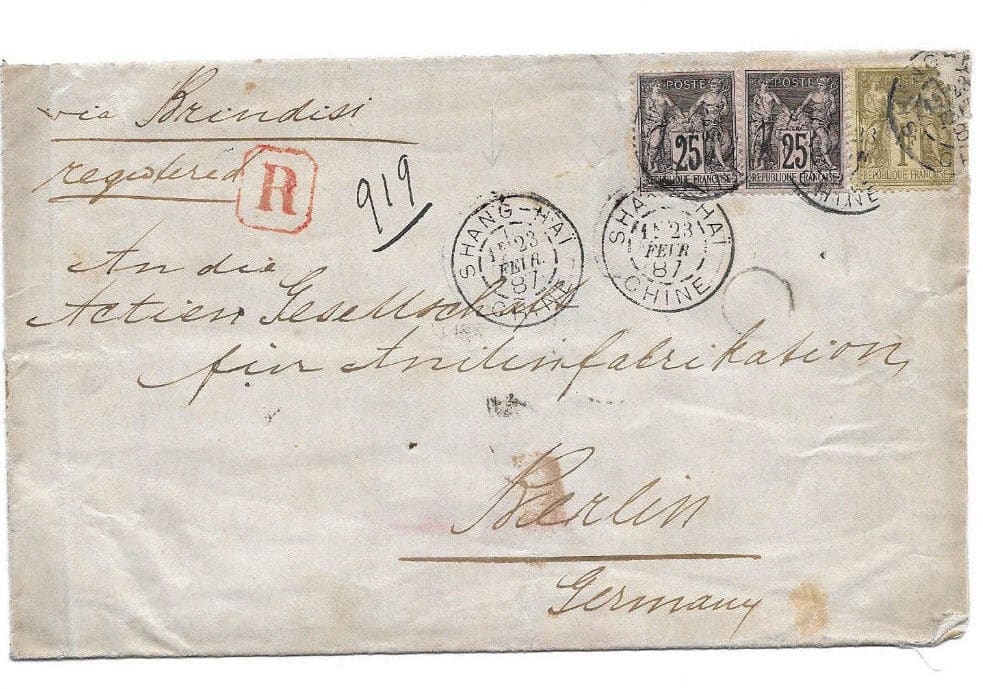 via Brindisi
registered
R
919
POSTE
25
REPUBLIQUE FRANÇAISE
POSTE
25
REPUBLIQUE FRANÇAISE
1F
REPUBLIQUE FRANÇAISE
CHINE
SHANG-HAÏ
1E 23
FEVR.
87
CHINE
SHANG-HAÏ
1E 23
FEVR
87
CHINE
An die
Actien Gesellschaft
für Anilinfabrikation,
Berlin
Germany